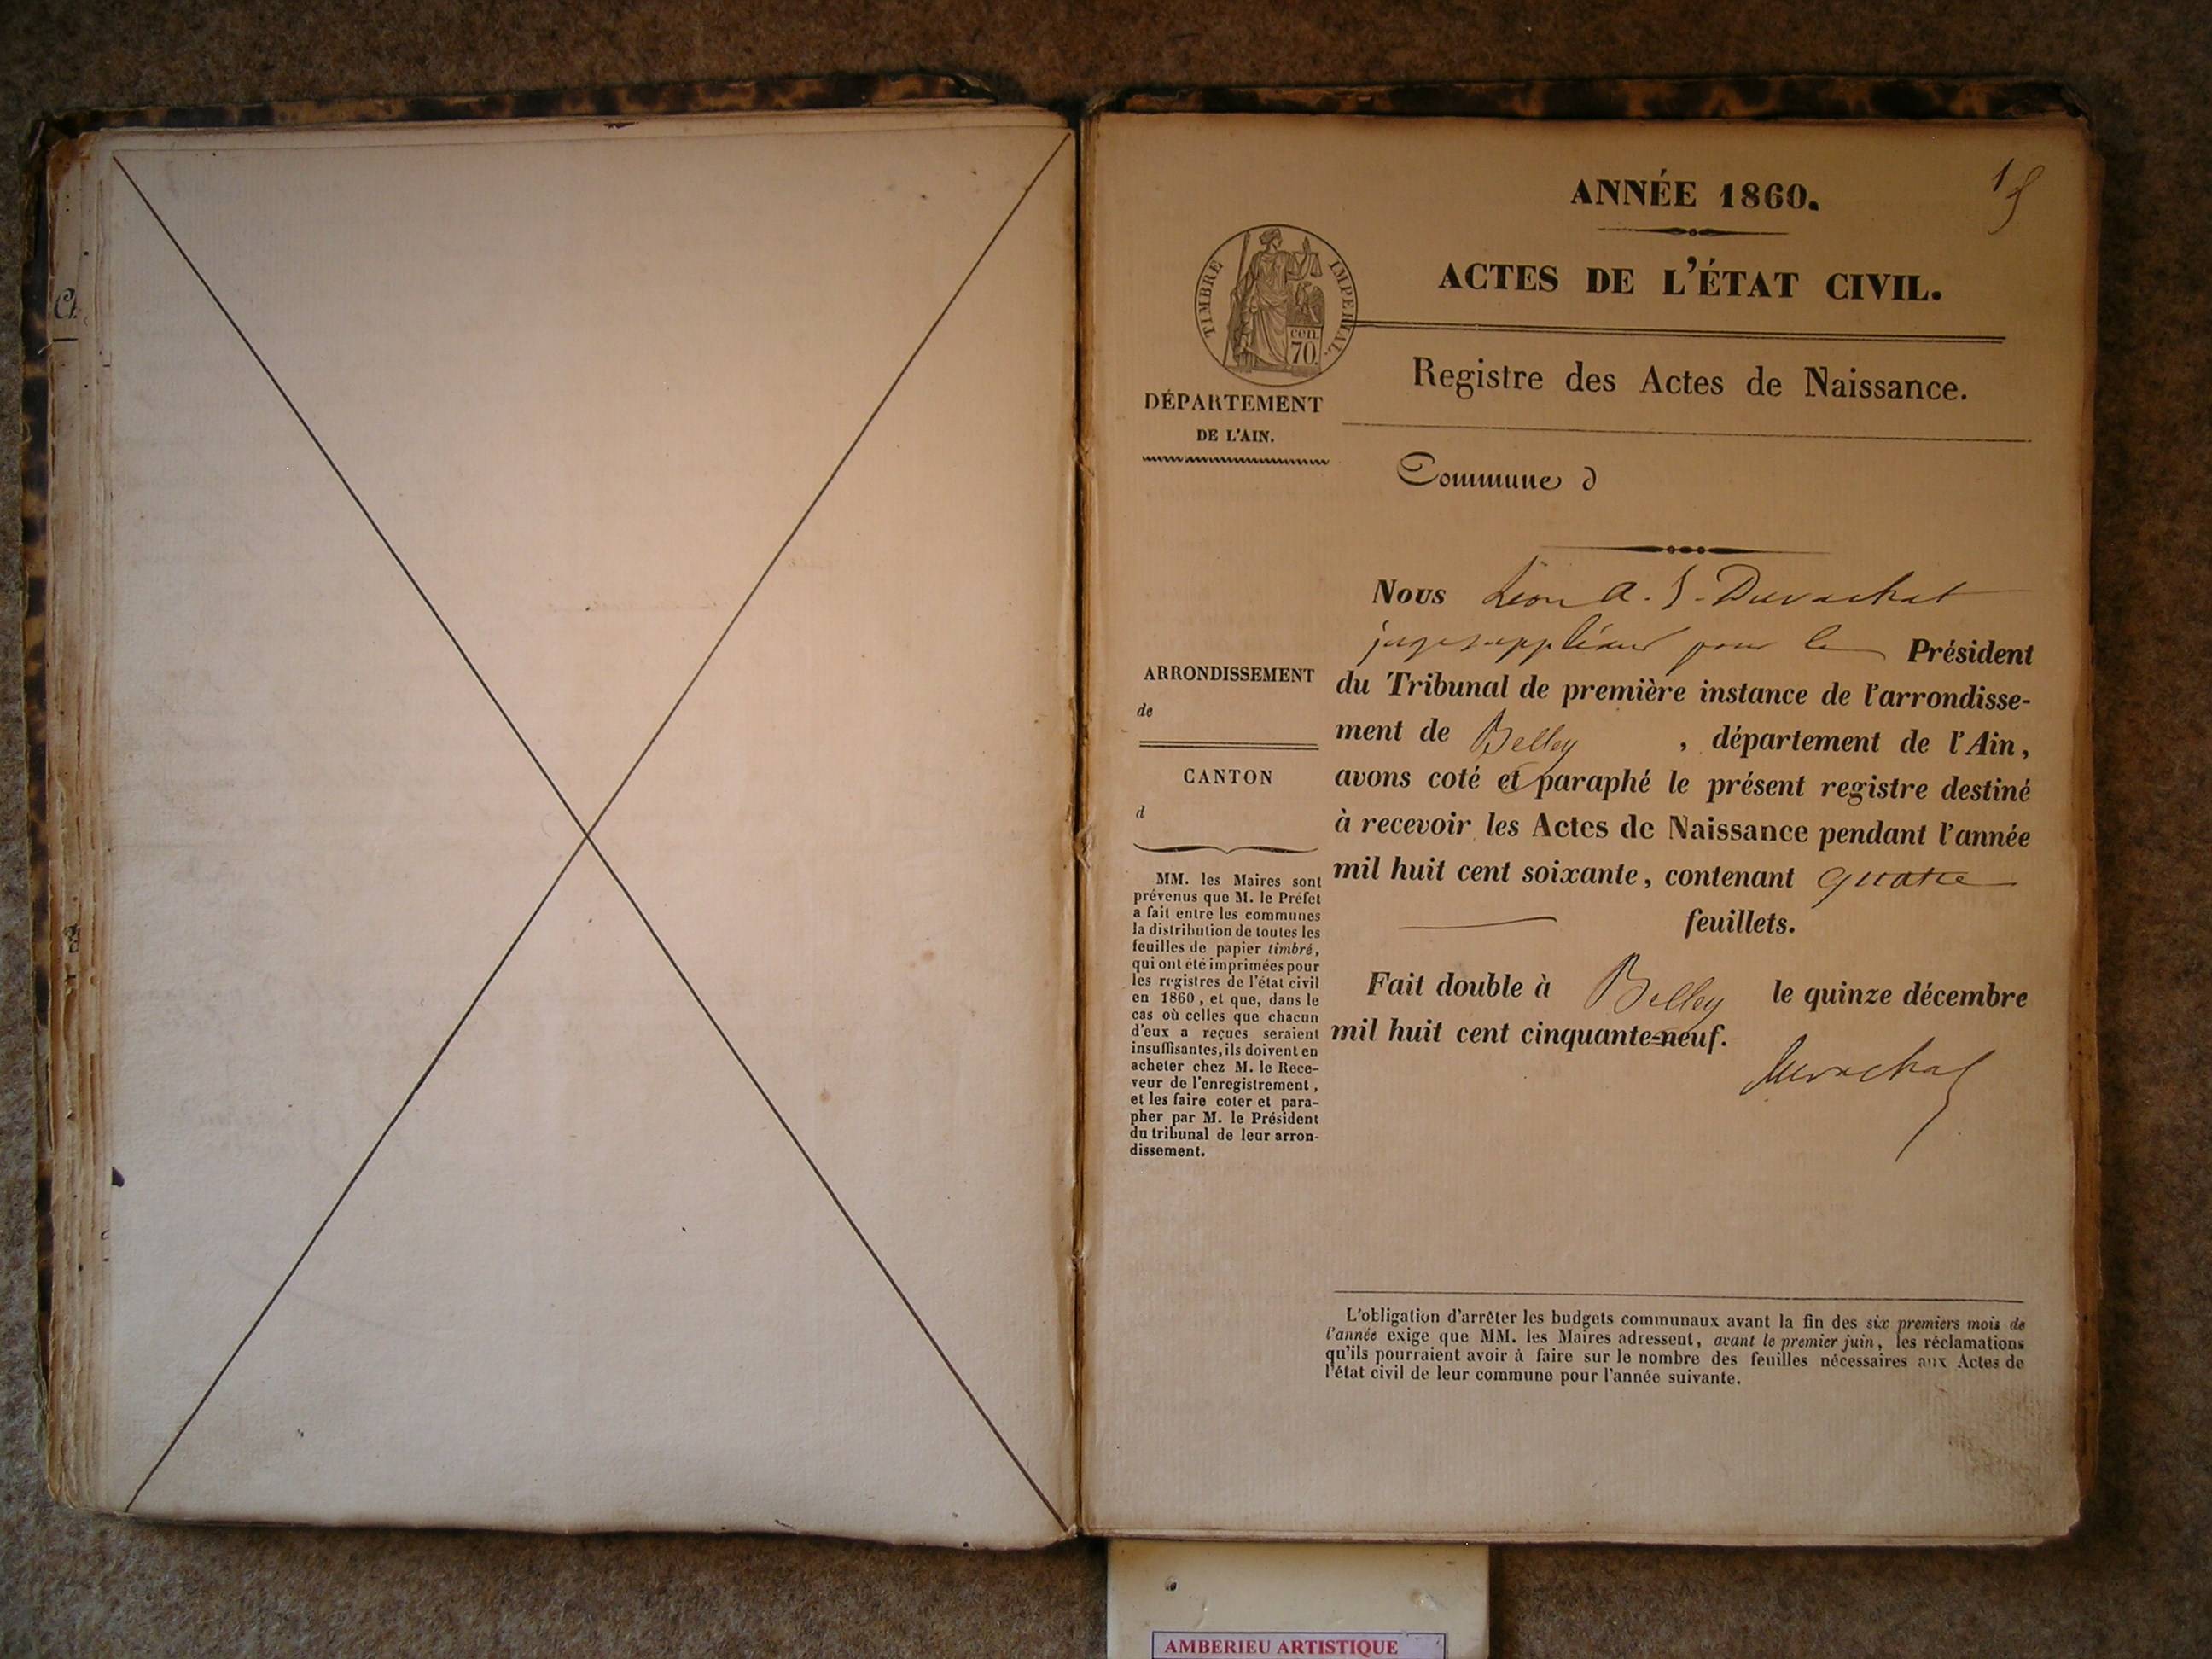 Ch
ANNÉE 1860.
ACTES DE L'ÉTAT CIVIL.
TIMBRE IMPERIAL.
cen.
70.
Registre des Actes de Naissance.
DÉPARTEMENT
DE L'AIN.
Commune d
Nous Léon A. J. Duvachat
juge suppléant pour le Président
du Tribunal de première instance de l'arrondisse-
ment de Belley , département de l'Ain,
avons coté et paraphé le présent registre destiné
à recevoir les Actes de Naissance pendant l'année
mil huit cent soixante, contenant quatre
feuillets.
Fait double à Belley le quinze décembre
mil huit cent cinquante-neuf.
Duvachat
ARRONDISSEMENT
de
CANTON
d
MM. les Maires sont
prévenus que M. le Préfet
a fait entre les communes
la distribution de toutes les
feuilles de papier timbré,
qui ont été imprimées pour
les registres de l'état civil
en 1860, et que, dans le
cas où celles que chacun
d'eux a reçues seraient
insuffisantes, ils doivent en
acheter chez M. le Rece-
veur de l'enregistrement,
et les faire coter et para-
pher par M. le Président
du tribunal de leur arron-
dissement.
L'obligation d'arrêter les budgets communaux avant la fin des six premiers mois de
l'année exige que MM. les Maires adressent, avant le premier juin, les réclamations
qu'ils pourraient avoir à faire sur le nombre des feuilles nécessaires aux Actes de
l'état civil de leur commune pour l'année suivante.
AMBERIEU ARTISTIQUE